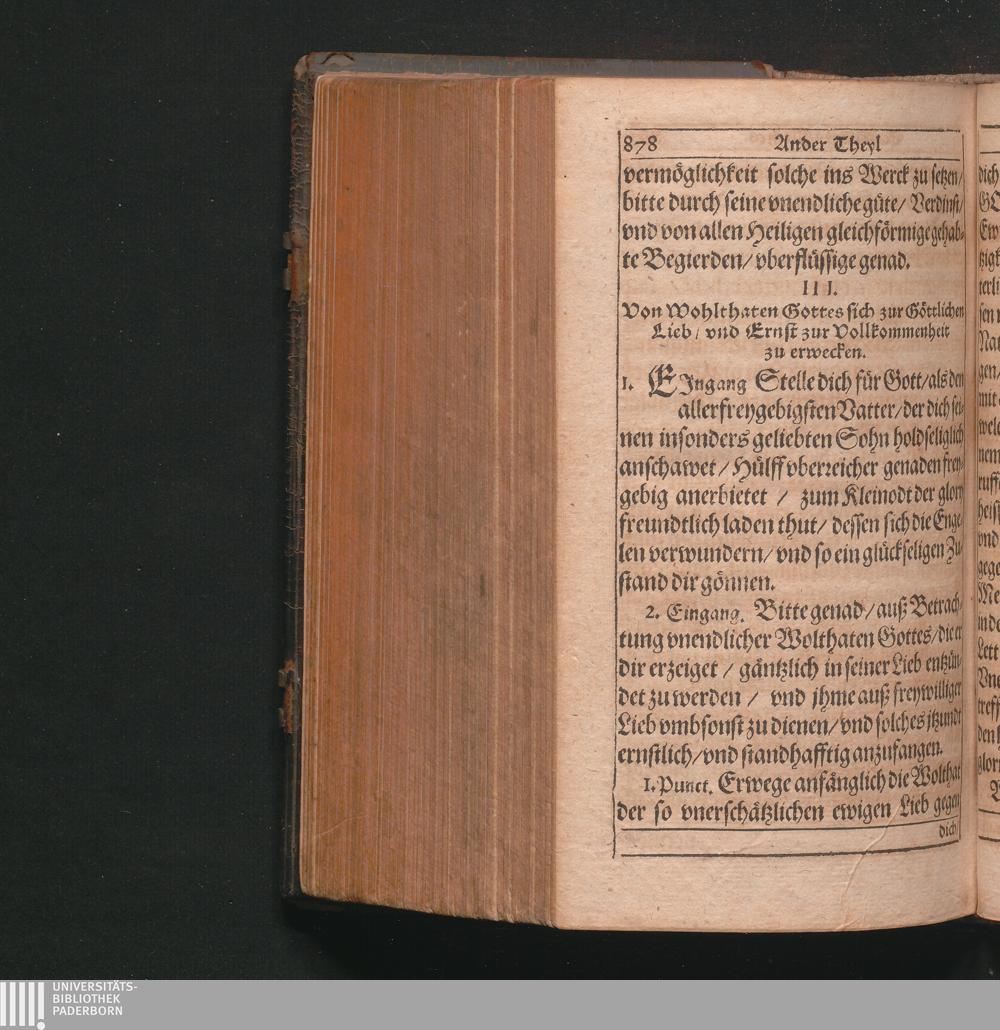 878 Ander Theyl
vermöglichkeit solche ins Werck zu setzen/
bitte durch seine vnendliche güte/ Verdinst/
vnd von allen Heiligen gleichförmige gehab-
te Begierden/ vberflüssige genad.
III.
Von Wohlthaten Gottes sich zur Göttlichen
Lieb/ vnd Ernst zur Vollkommenheit
zu erwecken.
1. EIngang Stelle dich für Gott/ als den
allerfreygebigsten Vatter/ der dich sei-
nen insonders geliebten Sohn holdseliglich
anschawet/ Hülff vberreicher genaden frey-
gebig anerbietet / zum Kleinodt der glory
freundtlich laden thut/ dessen sich die Enge-
len verwundern/ vnd so ein glückseligen Zu-
stand dir gönnen.
2. Eingang. Bitte genad/ auß Betrach-
tung vnendlicher Wolthaten Gottes/ die er
dir erzeiget / gäntzlich in seiner Lieb entzün-
det zu werden / vnd jhme auß freywilliger
Lieb vmbsonst zu dienen/ vnd solches jtzundt
ernstlich/ vnd standhafftig anzufangen.
1. Punct. Erwege anfänglich die Wolthat
der so vnerschätzlichen ewigen Lieb gegen
dich
UNIVERSITÄTS-
BIBLIOTHEK
PADERBORN